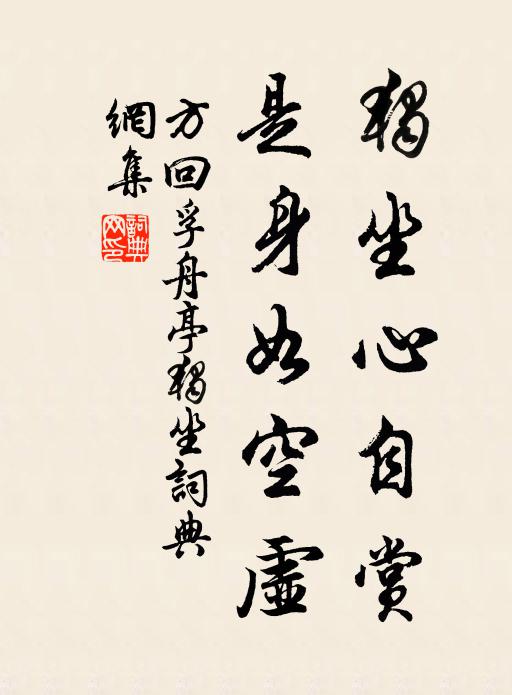 獨坐心自賞
是身如空虛
方回孚舟亭獨坐詞典
網集
詞典
网印